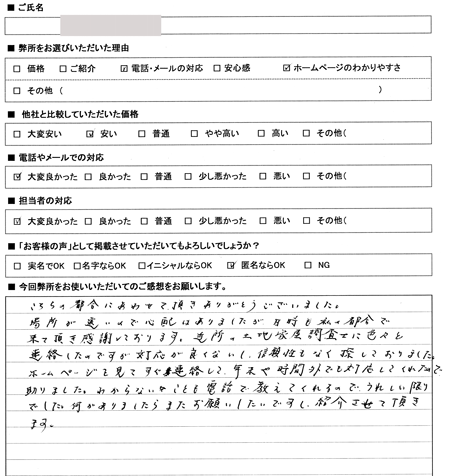 ■ ご氏名
■ 弊所をお選びいただいた理由
□ 価格 □ ご紹介 ☑ 電話・メールの対応 □ 安心感 ☑ ホームページのわかりやすさ
□ その他 ( )
■ 他社と比較していただいた価格
□ 大変安い ☑ 安い □ 普通 □ やや高い □ 高い □ その他(
■ 電話やメールでの対応
☑ 大変良かった □ 良かった □ 普通 □ 少し悪かった □ 悪い □ その他(
■ 担当者の対応
☑ 大変良かった □ 良かった □ 普通 □ 少し悪かった □ 悪い □ その他(
■「お客様の声」として掲載させていただいてもよろしいでしょうか？
□ 実名でOK □ 名字ならOK □ イニシャルならOK ☑ 匿名ならOK □ NG
■ 今回弊所をお使いいただいてのご感想をお願いします。
こちらの都合にあわせて頂きありがとうございました。
場所が遠いので心配はありましたが日時も私の都合で
来て頂き感謝しております。近所の土地家屋調査士に色々と
連絡したのですが対応が良くないし、信頼性もなく探しておりました。
ホームページを見てすぐ連絡して、年末や時間外でも対応してくれたので
助りました。わからないことも電話で教えてくれるので、うれしい限り
でした。何かありましたらまたお願いしたいですし、紹介させて頂き
ます。